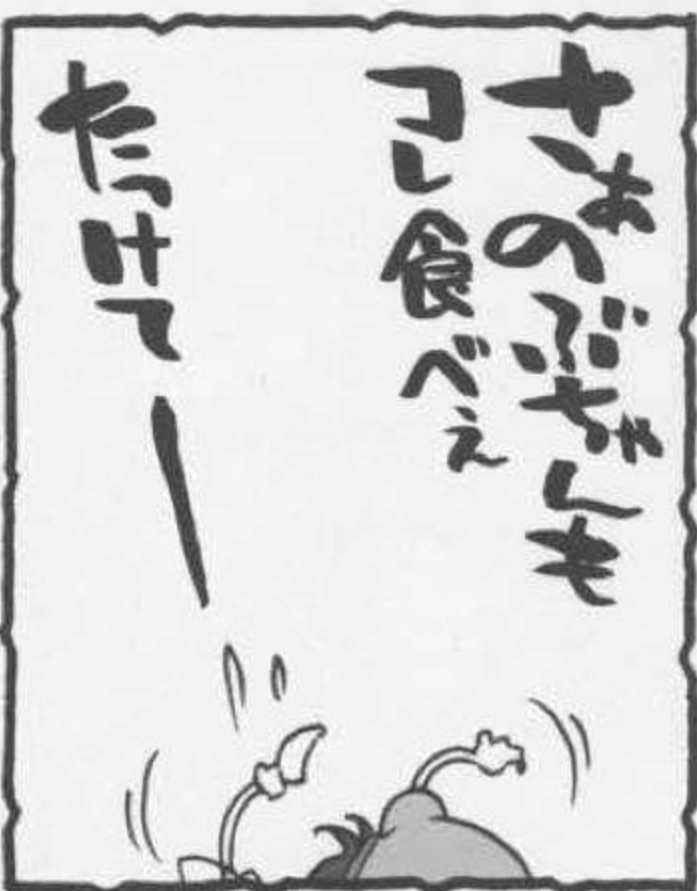 さぁのぶちゃんも
コレ食べぇ
たっけてー